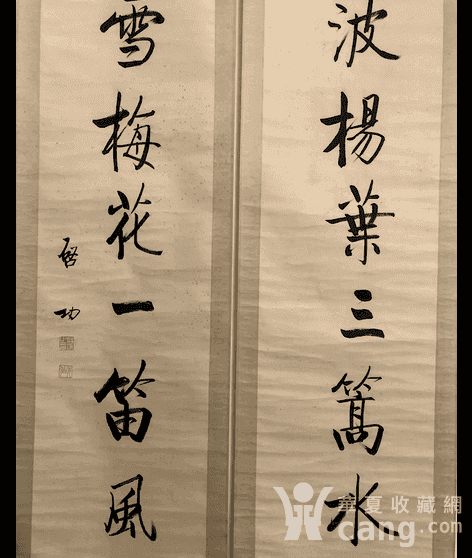 波楊葉三篙水
雪梅花一笛風
啓功
華夏收藏網
cang.com